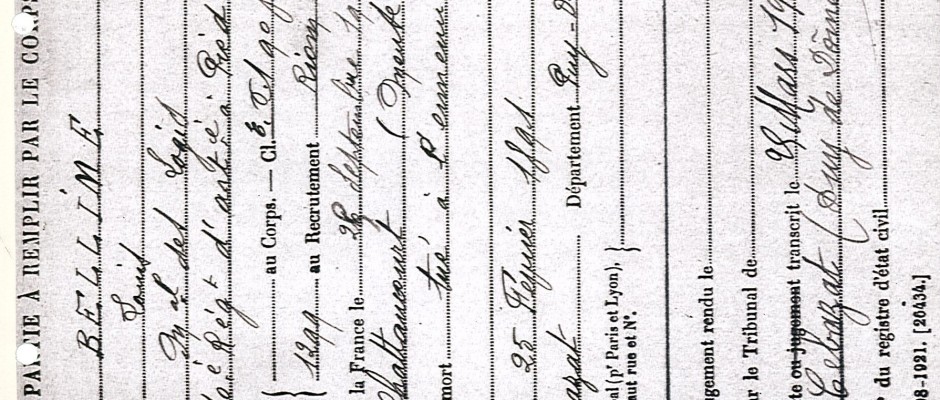 PARTIE À REMPLIR PAR LE CORPS
BELLIME
Louis
Mal des Logis
Régt d'artie à Pied
au Corps. — Cl.
1299 au Recrutement Riom
la France le 28 septembre
Chattancourt (Meuse
mort tué à l'ennemi
25 Février 1891
Département Puy-
al (pr Paris et Lyon),
aut rue et N°.
ugement rendu le
ar le Tribunal de
te ou jugement transcrit le Mars 19
Cebazat (Puy de Dôme
° du registre d'état civil
08-1921. [26434.]